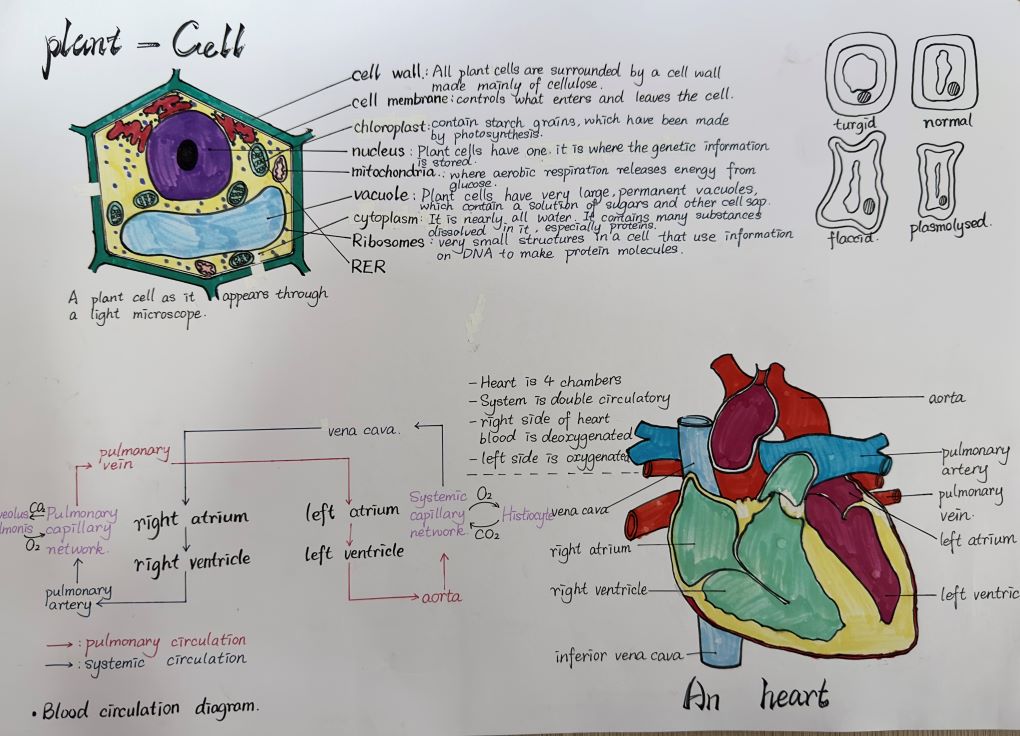 plant - Cell
cell wall: All plant cells are surrounded by a cell wall
made mainly of cellulose.
cell membrane: controls what enters and leaves the cell.
chloroplast: contain starch grains, which have been made
by photosynthesis.
nucleus: Plant cells have one. it is where the genetic information
is stored.
mitochondria.: where aerobic respiration releases energy from
glucose.
vacuole: Plant cells have very large, permanent vacuoles,
which contain a solution of sugars and other cell sap.
cytoplasm: It is nearly all water. It contains many substances
dissolved in it, especially proteins.
Ribosomes: very small structures in a cell that use information
on DNA to make protein molecules.
RER
A plant cell as it appears through
a light microscope.
turgid
normal
flaccid.
plasmolysed.
- Heart is 4 chambers
- System is double circulatory
- right side of heart
blood is deoxygenated
- left side is oxygenated
vena cava.
pulmonary
vein
right atrium
right ventricle
left atrium
left ventricle
Pulmonary
capillary
network.
CO₂
O₂
pulmonary
artery
Systemic
capillary
network.
O₂
CO₂
Histiocyte
aorta
→: pulmonary circulation
→: systemic circulation
• Blood circulation diagram.
aorta
pulmonary
artery
pulmonary
vein.
left atrium
left ventric
vena cava
right atrium
right ventricle
inferior vena cava
An heart